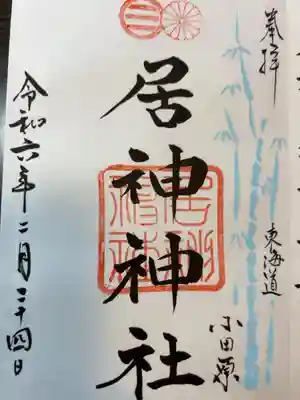 奉拝
東海道
小田原
居神神社
令和六年二月二十四日